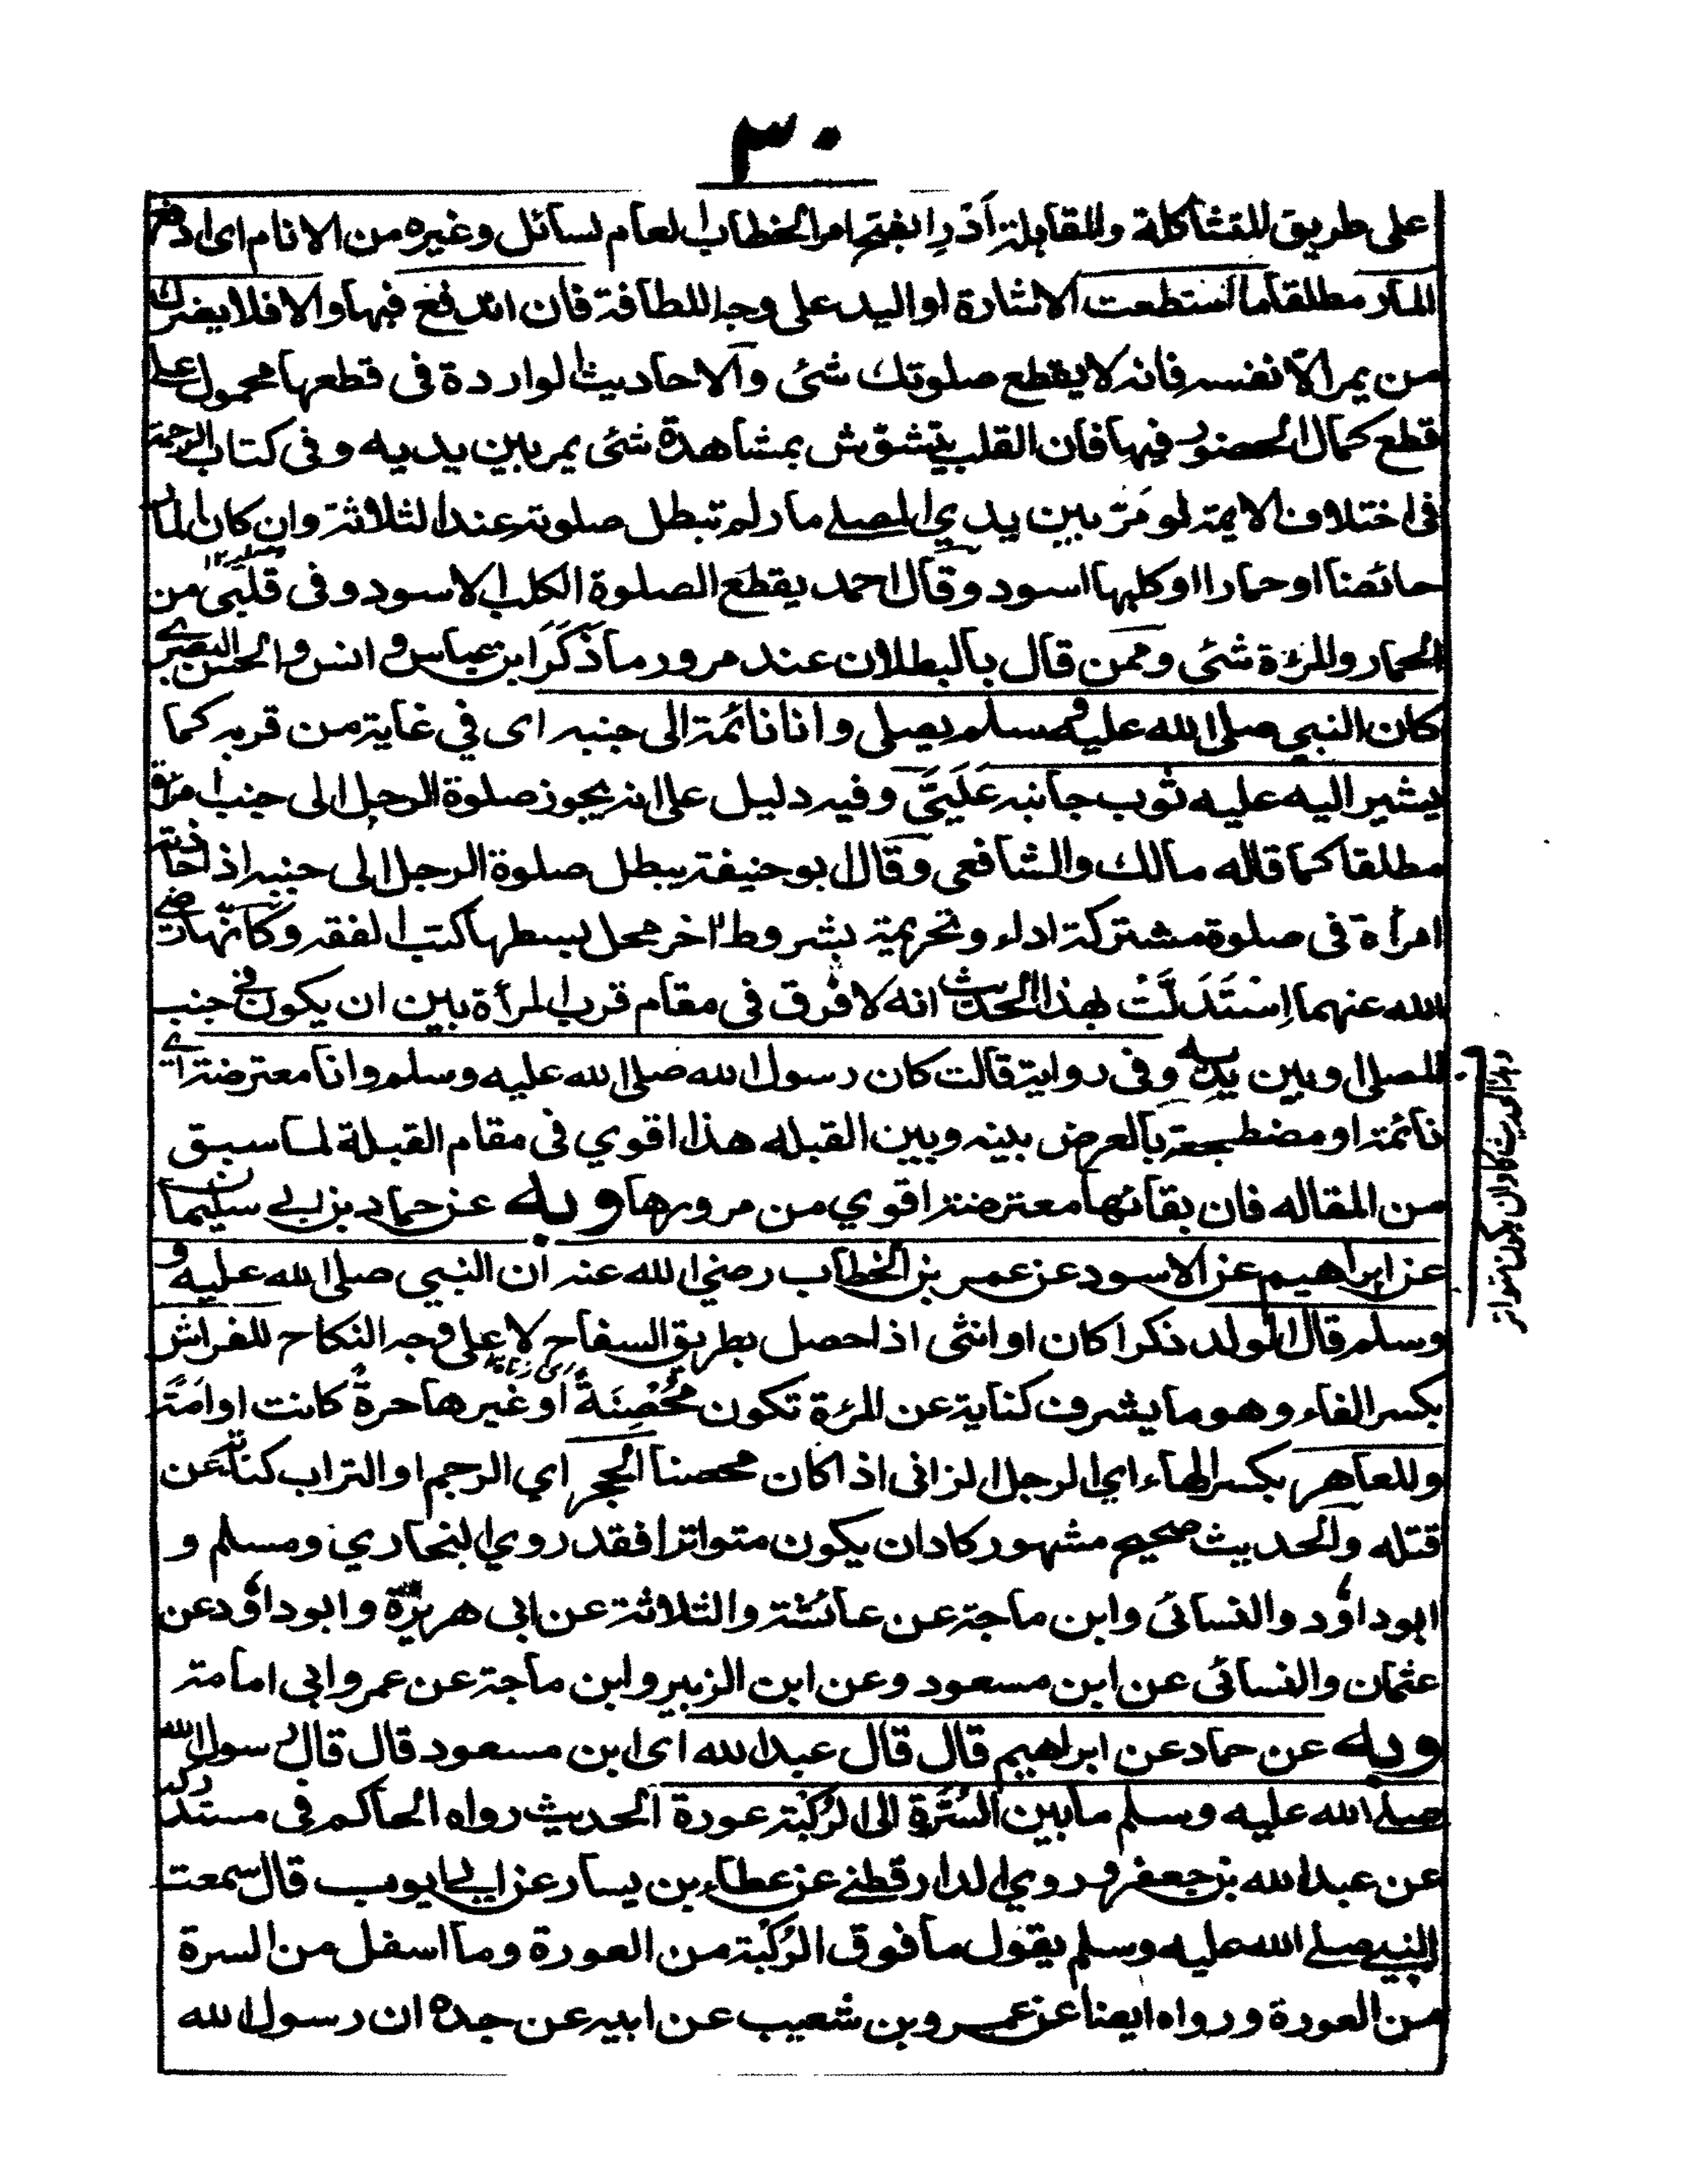 ٣٠
على طريق المشاكلة والمقابلة اَدْرِا بفتح امر الخطاب العام لسائل وغيره من الانام اى ادفع
المار مطلقا ما استطعت الاشارة او اليد على وجه اللطافة فان اندفع فبها والا فلا يضرك
من يمر الا نفسه فانه لا يقطع صلوتك شئ والاحاديث الواردة فى قطعها محمول على
قطع كمال الحضور فيها فان القلب يتشوّش بمشاهدة شئ يمر بين يديه وفى كتاب الرحمة
فى اختلاف الايمة لو مَرّ بين يدي المصلے مار لم تبطل صلوته عند الثلاثة وان كان المار
حائضا او حمارا او كلبها اسود وقال احمد يقطع الصلوة الكلب الاسود وفى قلبى من
الحمار والمرءة شئ وممن قال بالبطلان عند مرور ما ذَكَرَ ابن عباس و انس والحسن البصرے
كان النبي صلى الله عليه وسلم يصلى وانا نائمة الى جنبه اى في غاية من قربه كما
يشير اليه عليه ثوب جانبه عَلَيَّ وفيه دليل على انه يجوز صلوة الرجل الى جنب امرأة
مطلقا كما قاله مالك والشافعى وقال ابو حنيفة يبطل صلوة الرجل الى جنبه اذا حاذته
امرأة فى صلوة مشتركة اداء وتحريمة بشروط اخر محل بسطها كتب الفقه وكأنها رضى
الله عنهما اِسْتَدَلَّتْ بهذا الحديث انه لا فرق فى مقام قرب المرأة بين ان يكون فے جنب
المصلى او بين يديه وفى رواية قالت كان رسول الله صلى الله عليه وسلم وانا معترضة اى
نائمة او مضطجعة بالعرض بينه وبين القبله هذا اقوي فى مقام القبلة لما سبق
من المقاله فان بقائها معترضة اقوي من مرورها وبه عن حماد بن ابے سليمان
عن ابراهيم عن الاسود عن عمر بن الخطاب رضي الله عنه ان النبي صلى الله عليه و
وسلم قال الولد ذكرا كان او انثى اذا حصل بطريق السفاح لا على وجه النكاح للفراش
بكسر الفاء وهو ما يشرف كناية عن المرءة تكون مُحْصِنَةً او غيرها حرةً كانت او امَةً
وللعاهر بكسر الهاء اي الرجل الزانى اذا كان محصنا الحجر اي الرجم او التراب كناية عن
قتله والحديث صحيح مشهور كاد ان يكون متواترا فقد روي البخاري ومسلم و
ابو داؤد والنسائى وابن ماجة عن عائشة والثلاثة عن ابى هريرة وابو داؤد عن
عثمان والنسائى عن ابن مسعود وعن ابن الزبير وابن ماجة عن عمر وابى امامة
وبه عن حماد عن ابراهيم قال قال عبد الله اى ابن مسعود قال قال رسول الله
صلے الله عليه وسلم ما بين السُّرَّة الى الرُكْبَة عورة الحديث رواه الحاكم فى مستدركه
عن عبد الله بن جعفر وروي الدارقطنے عن عطاء بن يسار عن ابے ايوب قال سمعت
النبے صلے الله عليه وسلم يقول ما فوق الرُكْبَة من العورة وما اسفل من السرة
من العورة ورواه ايضا عن عمرو بن شعيب عن ابيه عن جده ان رسول الله
الحديث كاد ان يكون متواتر